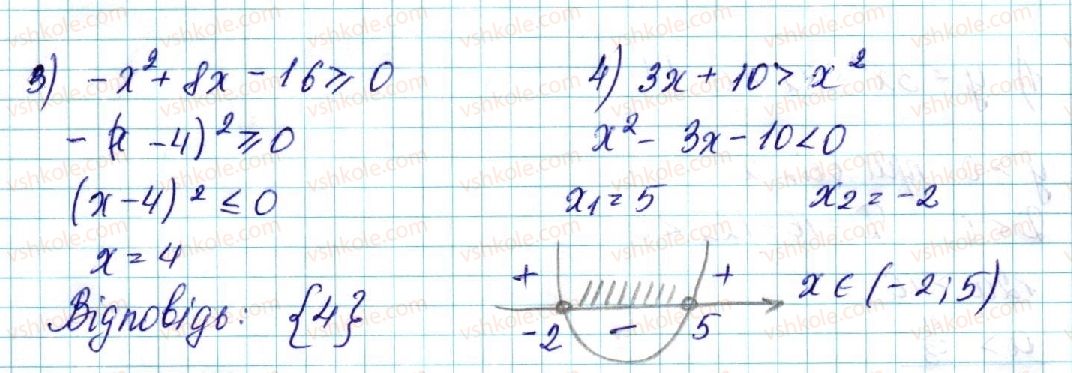 3) -x² + 8x - 16 ≥ 0
-(x - 4)² ≥ 0
(x - 4)² ≤ 0
x = 4
Відповідь: {4}
4) 3x + 10 > x²
x² - 3x - 10 < 0
x₁ = 5 x₂ = -2
+ +
-2 - 5
x ∈ (-2; 5)
vshkole.com